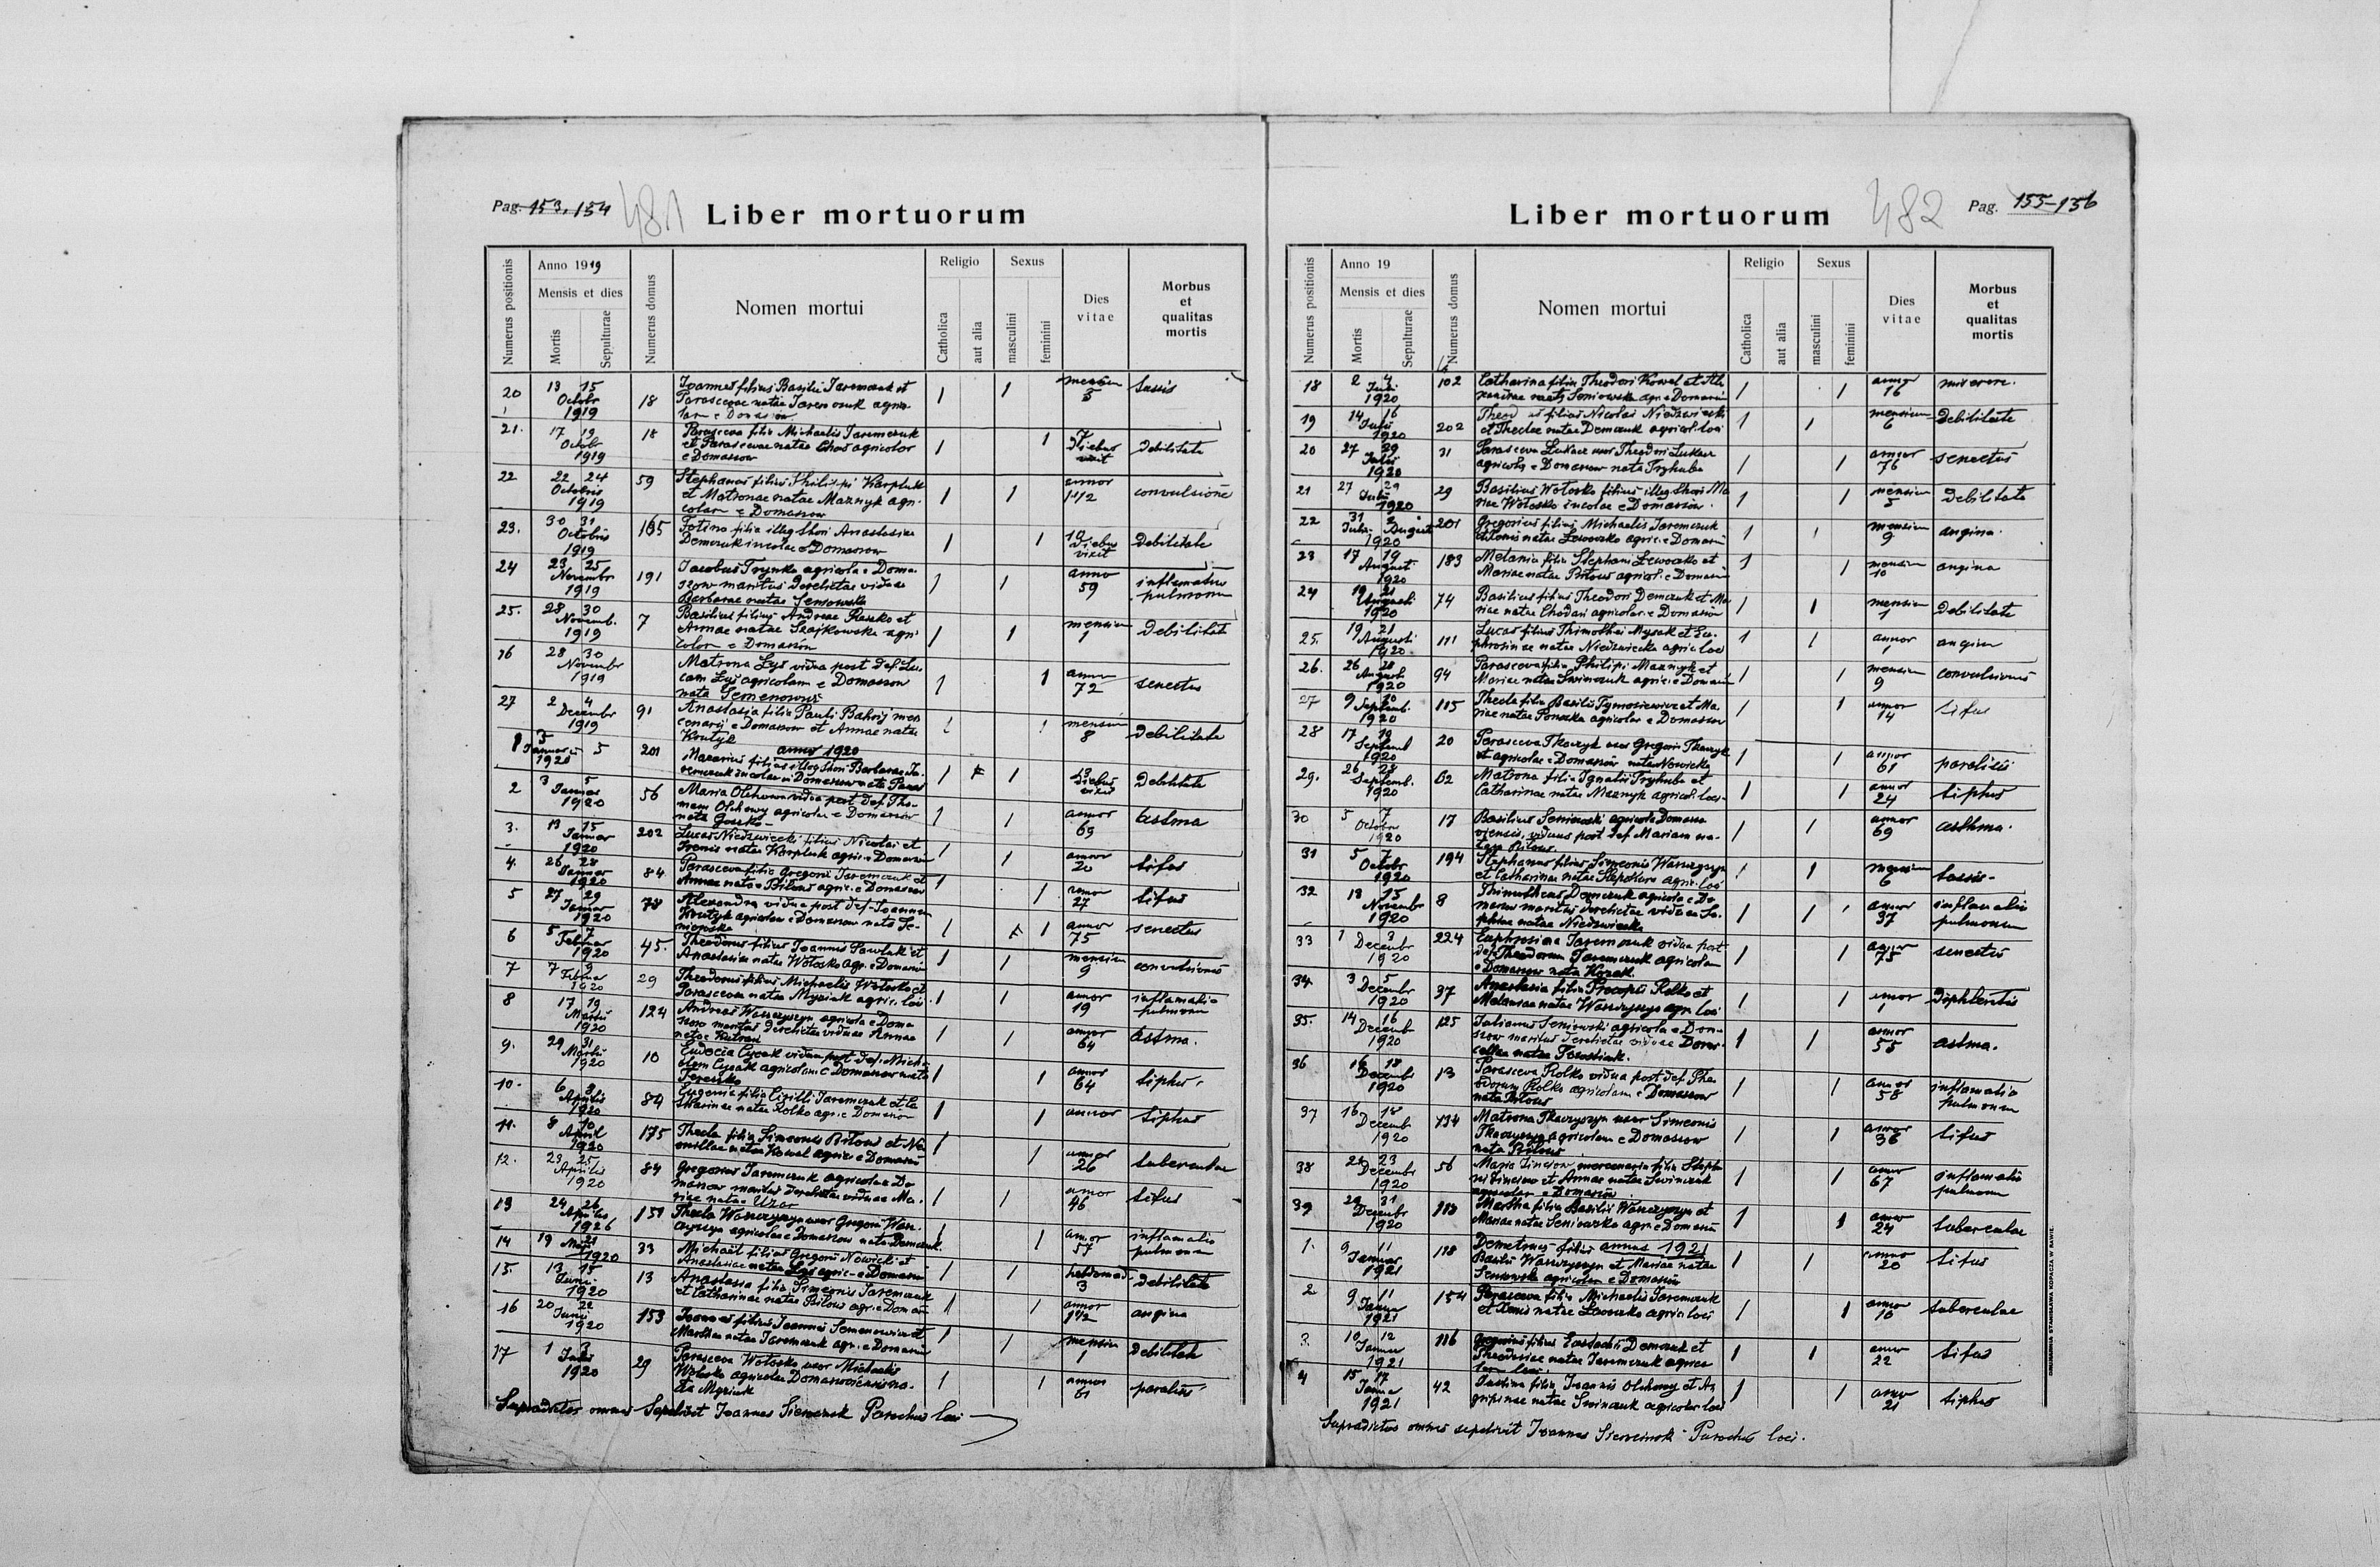 Pag. 153, 154
481
Liber mortuorum
Numerus positionis
Anno 1919
Mensis et dies
Mortis
Sepulturae
Numerus domus
Nomen mortui
Religio
Catholica
aut alia
Sexus
masculini
feminini
Dies vitae
Morbus et qualitas mortis
20 13 15 Octobr 1919 18
Joannes filius Basilii Jaremczuk et
Parascevae natae Jaremczuk agrico-
lar e
mensium 5
tussis
21. 17 19 Octobr 1919 18
Parasceva filia Michaelis Jaremczuk
et Parascevae natae agricolar
e Domaszow
7 diebus vixit
debilitate
22 22 24 Octobris 1919 59
Stephanus filius Philippi Karpluk
et Matronae natae Maznyk agri-
colar e Domaszow
annor 1 1/2
convulsione
23. 30 31 Octobris 1919 165
Fotina filia illeg. thori Anastasiae
Demczuk incolae e Domaszow
diebus vixit
debilitate
24 23 25 Novembr 1919 191
Jacobus Trynka agricola e Doma-
szow maritus derelictae viduae
Barbarae natae Seniowska
anno 59
inflamatio pulmonum
25. 28 30 Novemb. 1919 7
Basilius filius Andreae et
Annae natae agri-
color e Domaszow
mensium 1
debilitate
28 30 Novembr 1919
Matrona Lys vidua post def. Lu-
cam Lys agricolam e Domaszow
nata
annor 72
senectus
27 2 4 Decembr 1919 91
Anastasia filia Pauli mer-
cenarii e Domaszow et Annae natae
Koutyk
mensium 8
debilitate
annus 1920
1 3 5 Januar 1920 201
Macarius filius illeg. thori Barbarae Ja-
remczuk incolae in Domaszow
13 diebus vixit
debilitate
2 3 5 Januar 1920 56
Maria Olchowa vidua post def. Tho-
mam Olchowy agricolae e Domaszow
nata
annor 69
astma
3. 13 15 Januar 1920 202
Lucas Niedzwiecki filius Nicolai et
Irenis natae Karpluk agric. e Domaszow
annor 20
tifus
4. 26 28 Januar 1920 84
Parasceva filia Gregorii Jaremczuk et
Annae natae Bilous agric. e Domaszow
annor 27
tifus
5 27 29 Januar 1920 78
Alexandra vidua post def. Joannem
Koutyk agricolam e Domaszow nata Se-
niowska
annor 75
senectus
6 5 7 Februar 1920 45.
Theodorus filius Joannis Pawluk et
Anastasiae natae Wotosko agr. e Domaszow
mensium 9
convulsiones
7 7 9 Februar 1920 29
Theodorus filius Michaelis Wotosko et
Parascevae natae Myziuk agric. loci
annor 19
inflamatio pulmonum
8 17 19 Martii 1920 124
Andreas Waszczyszyn agricola e Doma-
szow maritus derelictae viduae Annae
natae
annor 64
astma.
9. 29 31 Martii 1920 10
Eudocia Cycak vidua post def. Micha-
elem Cycak agricolam e Domaszow nata
annor 64
tiphus
10. 6 8 Aprilis 1920 84
Eugenia filia Cirilli Jaremczuk et Ca-
tharinae natae Rolko agr. e Domaszow
annor
tiphus
11. 8 10 April 1920 175
Thecla filia Simeonis Bilous et
natae Kowal agric. e Domaszow
annor 26
tuberculae
12. 23 25 Aprilis 1920 84
Gregorius Jaremczuk agricola e Do-
maszow maritus derelictae viduae Ma-
riae natae
annor 46
tifus
13 24 26 Aprilis 1926 151
Thecla Waszczyszyn uxor Gregorii Wasz-
czyszyn agricolae e Domaszow nata Demczuk.
annor 57
inflamatio pulmonum
14 19 21 Maii 1920 33
Michaël filius Gregorii Nowicki et
Anastasiae natae Lys agric. e Domaszow
hebdomad. 3
debilitate
15. 13 15 Junii 1920 13
Anastasia filia Simeonis Jaremczuk
et Catharinae natae Bilous agr. e Domaszow
annor 1 1/2
angina
16 20 22 Junii 1920 153
Joannes filius Joannis et
Marthae natae Jaremczuk agr. e Domaszow
mensium 1
debilitate
17 1 3 Julii 1920 29
Parasceva Wotosko uxor Michaelis
Wotosko agricolae Domaszoviensis na-
ta Myziuk
annor 61
paralisis
Supradictos omnes sepelivit Joannes Parochus loci
Liber mortuorum
482
Pag. 155-156
Numerus positionis
Anno 19
Mensis et dies
Mortis
Sepulturae
Numerus domus
Nomen mortui
Religio
Catholica
aut alia
Sexus
masculini
feminini
Dies vitae
Morbus et qualitas mortis
18 2 4 Julii 1920 102
Catharina filia Theodori Kowal et
natae Seniowska agr. e Domaszow
annor 16
19 14 16 Julii 1920 202
Theod filius Nicolai Niedzwiecki
et Theclae natae Demczuk agricol. loci
mensium 6
debilitate
20 27 29 Julii 1920 31
Parasceva uxor Theodori
agricola e Domaszow nata Tryhuba
annor 76
senectus
21 27 29 Julii 1920 29
Basilius Wotosko filius illeg. thori Ma-
riae Wotosko incolae e Domaszow.
mensium 5
debilitate
22 31 Julii 2 August 1920 201
Gregorius filius Michaelis Jaremczuk
natae agric. e Domaszow
mensium 9
angina.
23 17 19 August 1920 183
Melania filia Stephani et
Mariae natae Bilous agricol. e Domaszow
mensium 10
angina
24 19 21 Augusti 1920 74
Basilius filius Theodori Demczuk et Ma-
riae natae agricolar. e Domaszow
mensium 1
debilitate
25. 19 21 Augusti 1920 111
Lucas filius Thimothei Mysak et Eu-
phrosinae natae Niedzwiecka agric. loci
annor 1
angina
26. 26 28 Augusti 1920 94
Parasceva filia Philipi Maznyk et
Mariae natae Swinczuk agric. e Domaszow
mensium 9
convulsiones
27 9 10 Septemb. 1920 115
Thecla filia Basilii Tymosiewicz et Ma-
riae natae agricolar e Domaszow
annor 14
tifus
28 17 19 Septemb 1920 20
Parasceva Tkaczyk uxor Gregorii Tkaczyk
agricolae e Domaszow nata Nowicka
annor 61
paralisis
29. 26 28 Septemb. 1920 62
Matrona filia Ignatii Tryhuba et
Catharinae natae Maznyk agricol. loci
annor 24
tiphus
30 5 7 Octobr 1920 17
Basilius Seniowski agricola Domaszo-
viensis, viduus post def. Mariam na-
tam Bilous.
annor 69
asthma.
31 5 7 Octobr 1920 194
Stephanus filius Simeonis Waszczyszyn
et Catharinae natae agric. loci
mensium 6
tussis
32 13 15 Novembr 1920 8
Thimotheus Demczuk agricola e Do-
maszow maritus derelictae viduae So-
phiae natae Niedzwiecka
annor 37
inflamatio pulmonum
33 1 3 Decembr 1920 224
Euphrosina Jaremczuk vidua post
def. Theodorum Jaremczuk agricolam
e Domaszow nata Kozak.
annor 75
senectus
34. 3 5 Decembr 1920 37
Anastasia filia Procopii Rolko et
Melaniae natae Waszczyszyn agr. loci
annor 1
diphteritis
35. 14 16 Decemb 1920 125
Julianus Seniowski agricola e Doma-
szow maritus derelictae viduae
natae
annor 55
astma.
36 16 18 Decembr 1920 13
Parasceva Rolko vidua post def. The-
odorum Rolko agricolam e Domaszow
nata Bilous
annor 58
inflamatio pulmonum
37 16 18 Decemb 1920 134
Matrona Tkaczyszyn uxor Simeonis
Tkaczyszyn agricolam e Domaszow
nata Bilous
annor 36
tifus
38 21 23 Decembr 1920 56
Maria mercenaria filia Stepha-
ni et Annae natae Swinczuk
agricolar e Domaszow
annor 67
inflamatio pulmonum
39 29 31 Decembr 1920 118
Martha filia Basilii Waszczyszyn et
Mariae natae Seniowska agr. e Domaszow
annor 24
tuberculae
annus 1921
1. 9 11 Januar 1921 118
Demetrius filius
Basilii Waszczyszyn et Mariae natae
Seniowska agricolar e Domaszow
anno 20
tifus
2 9 11 Januar 1921 154
Parasceva filia Michaelis Jaremczuk
et natae agric. loci
annor 16
tuberculae
3. 10 12 Januar 1921 116
Gregorius filius Eustachii Demczuk et
Theodosiae natae Jaremczuk agrico-
lar loci
annor 22
tifus
4 15 17 Januar 1921 42
Justina filia Joannis Olchowy et Ag-
ripinae natae Swinczuk agricolar loci
annor 21
tiphus
Supradictos omnes sepelivit Joannes Parochus loci.
DRUKARNIA STANISŁAWA KOPACZA W RAWIE.